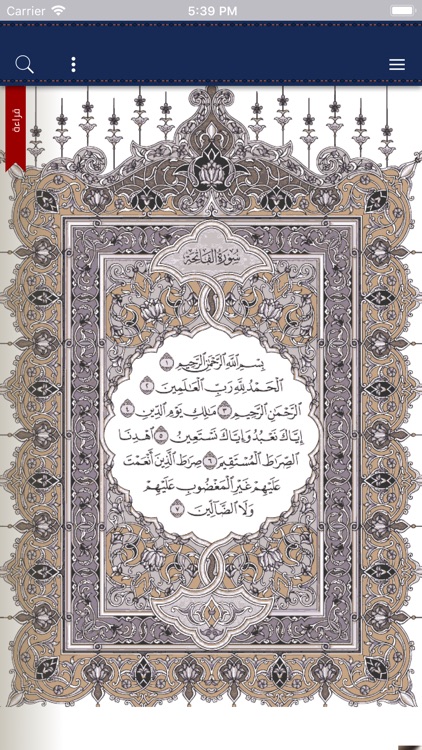 Carrier 5:39 PM
قراءة
سورة الفاتحة
بِسْمِ ٱللَّهِ ٱلرَّحْمَٰنِ ٱلرَّحِيمِ ١
ٱلْحَمْدُ لِلَّهِ رَبِّ ٱلْعَٰلَمِينَ ٢
ٱلرَّحْمَٰنِ ٱلرَّحِيمِ ٣ مَٰلِكِ يَوْمِ ٱلدِّينِ ٤
إِيَّاكَ نَعْبُدُ وَإِيَّاكَ نَسْتَعِينُ ٥ ٱهْدِنَا
ٱلصِّرَٰطَ ٱلْمُسْتَقِيمَ ٦ صِرَٰطَ ٱلَّذِينَ أَنْعَمْتَ
عَلَيْهِمْ غَيْرِ ٱلْمَغْضُوبِ عَلَيْهِمْ
وَلَا ٱلضَّآلِّينَ ٧